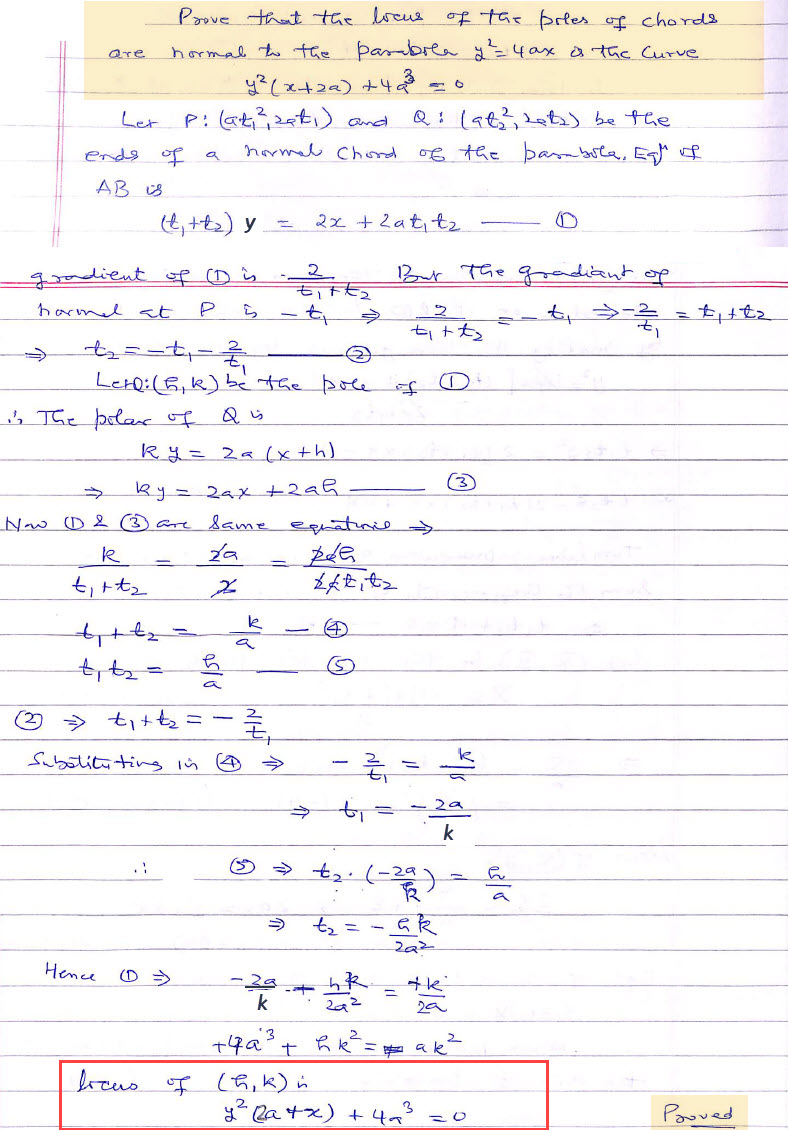 Prove that the locus of the poles of chords
are normal to the parabola y² = 4ax is the curve
y²(x+2a) + 4a³ = 0
Let P: (at₁², 2at₁) and Q: (at₂², 2at₂) be the
ends of a normal chord of the parabola. Eqⁿ of
AB is
(t₁+t₂) y = 2x + 2at₁t₂ —— ①
gradient of ① is 2/(t₁+t₂) But the gradient of
normal at P is -t₁ ⇒ 2/(t₁+t₂) = -t₁ ⇒ -2/t₁ = t₁+t₂
⇒ t₂ = -t₁ - 2/t₁ —— ②
Let Q:(h,k) be the pole of ①
∴ The polar of Q is
ky = 2a(x+h)
⇒ ky = 2ax + 2ah —— ③
Now ① & ③ are same equations ⇒
k/(t₁+t₂) = 2a/2 = 2ah/(2at₁t₂)
t₁+t₂ = k/a — ④
t₁t₂ = h/a — ⑤
② ⇒ t₁+t₂ = -2/t₁
Substituting in ④ ⇒ -2/t₁ = k/a
⇒ t₁ = -2a/k
∴ ⑤ ⇒ t₂·(-2a/k) = h/a
⇒ t₂ = -hk/2a²
Hence ① ⇒ -2a/k + hk/2a² = +k/2a
+4a³ + hk² = ak²
locus of (h,k) is
y²(2a+x) + 4a³ = 0
Proved